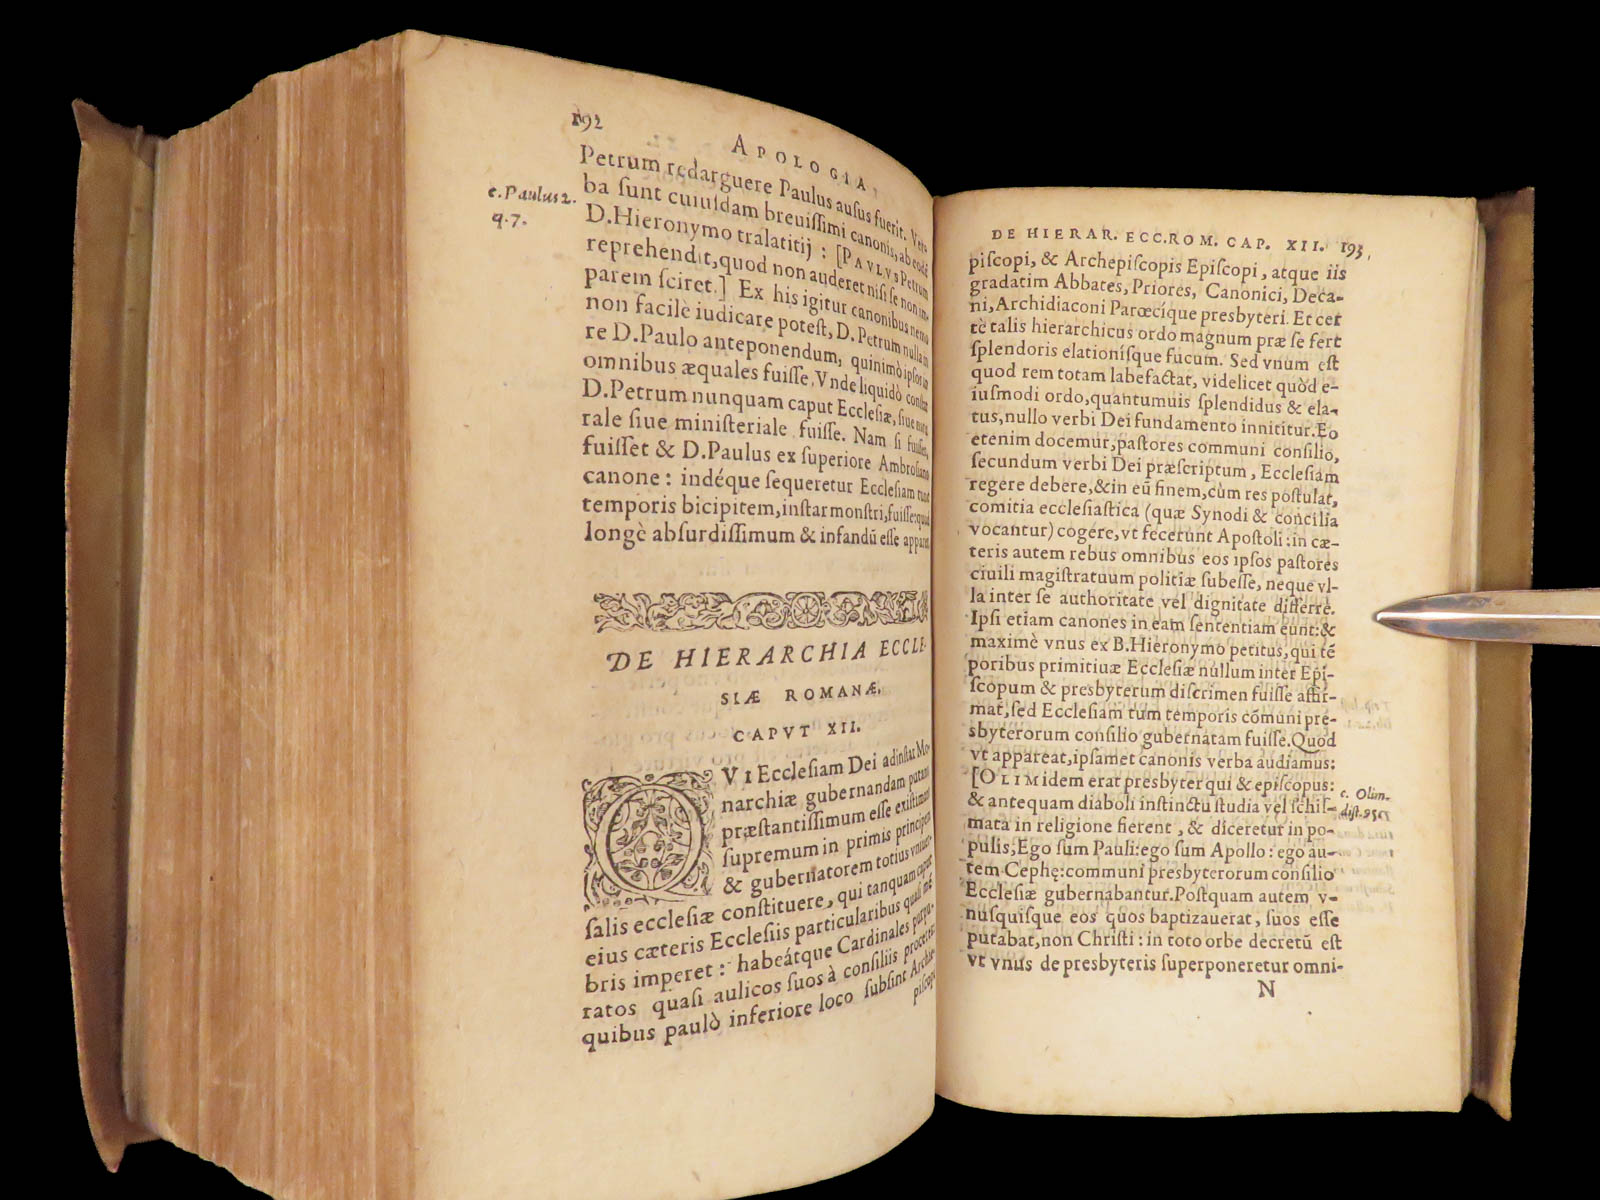 192
APOLOGIA,
Petrum redarguere Paulus ausus fuerit. Ver-
ba sunt cuiusdam breuissimi canonis, ab eodē
D. Hieronymo tralatitij : [PAVLVS Petrum
reprehendit, quod non auderet nisi se non im-
parem sciret.] Ex his igitur canonibus nemo
non facilè iudicare potest, D. Petrum nullam
re D. Paulo anteponendum, quinimò ipsos in
omnibus æquales fuisse. Vnde liquidò constat
D. Petrum nunquam caput Ecclesiæ, siue
rale siue ministeriale fuisse. Nam si fuisset,
fuisset & D. Paulus ex superiore Ambrosiano
canone : indéque sequeretur Ecclesiam tunc
temporis bicipitem, instar monstri, fuisse: quod
longè absurdissimum & infandū esse apparet
c. Paulus 2.
q. 7.
DE HIERARCHIA ECCLE-
SIÆ ROMANÆ.
CAPVT XII.
QVI Ecclesiam Dei adinstar Mo-
narchiæ gubernandam putant
præstantissimum esse existimant
supremum in primis principem
& gubernatorem totius vniuer-
salis ecclesiæ constituere, qui tanquam caput
eius cæteris Ecclesiis particularibus quasi mē
bris imperet : habeátque Cardinales purpu-
ratos quasi aulicos suos à consiliis proceres
quibus paulò inferiore loco subsint Archie-
piscopi
DE HIERAR. ECC. ROM. CAP. XII. 193
piscopi, & Archepiscopis Episcopi, atque iis
gradatim Abbates, Priores, Canonici, Deca-
ni, Archidiaconi Parœcíque presbyteri. Et cer
tè talis hierarchicus ordo magnum præ se fert
splendoris elationísque fucum. Sed vnum est
quod rem totam labefactat, videlicet quòd e-
iusmodi ordo, quantumuis splendidus & ela-
tus, nullo verbi Dei fundamento innititur. Eo
etenim docemur, pastores communi consilio,
secundum verbi Dei præscriptum, Ecclesiam
regere debere, & in eū finem, cùm res postulat,
comitia ecclesiastica (quæ Synodi & concilia
vocantur) cogere, vt fecerunt Apostoli : in cæ-
teris autem rebus omnibus eos ipsos pastores
ciuili magistratuum politiæ subesse, neque vl-
la inter se authoritate vel dignitate differre.
Ipsi etiam canones in eam sententiam eunt: &
maximè vnus ex B. Hieronymo petitus, qui tē
poribus primitiuæ Ecclesiæ nullum inter Epi-
scopum & presbyterum discrimen fuisse affir-
mat, sed Ecclesiam tum temporis cōmuni pre-
sbyterorum consilio gubernatam fuisse. Quod
vt appareat, ipsamet canonis verba audiamus:
[OLIM idem erat presbyter qui & episcopus:
& antequam diaboli instinctu studia vel schis-
mata in religione fierent, & diceretur in po-
pulis, Ego sum Pauli: ego sum Apollo : ego au-
tem Cephę: communi presbyterorum consilio
Ecclesiæ gubernabantur. Postquam autem v-
nusquisque eos quos baptizauerat, suos esse
putabat, non Christi : in toto orbe decretū est
vt vnus de presbyteris superponeretur omni-
N
c. Olim.
dist. 95